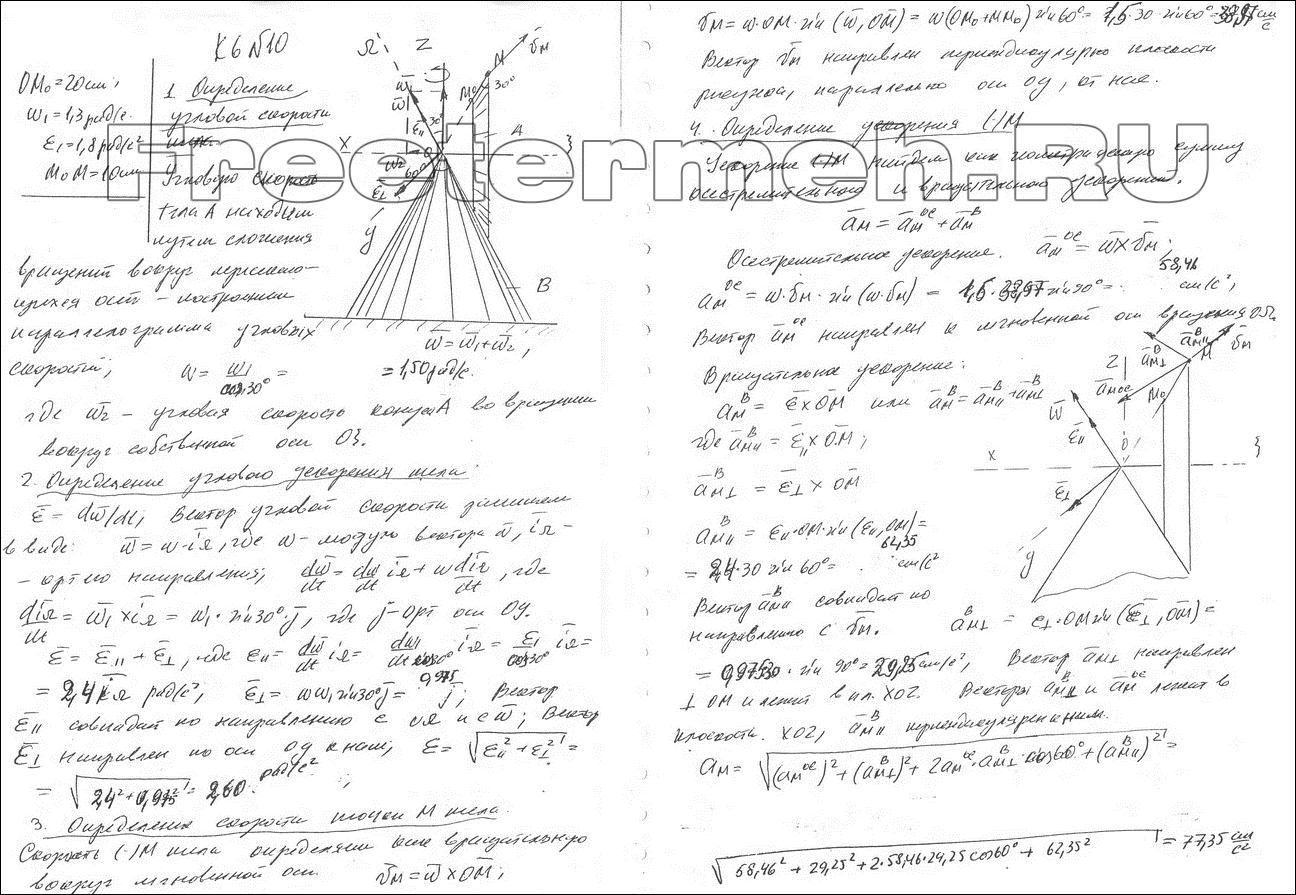 К6 №10
OM₀ = 20 см;
ω₁ = 1,3 рад/с.
ε₁ = 1,8 рад/с²
M₀M = 10 см
1. Определение
угловой скорости
Угловую скорость
тела A находим
путем сложения
вращений вокруг пересекаю-
щихся осей – построением
параллелограмма угловых
скоростей;
ω̄ = ω̄₁ + ω̄₂;
ω = ω₁ / cos 30° = = 1,50 рад/с.
где ω̄₂ – угловая скорость конуса A во вращении
вокруг собственной оси Oζ.
2. Определение углового ускорения тела:
ε̄ = dω̄/dt; Вектор угловой скорости запишем
в виде: ω̄ = ω·ī_Ω, где ω – модуль вектора ω̄, ī_Ω –
– орт его направления; dω̄/dt = dω/dt ī_Ω + ω dī_Ω/dt, где
dī_Ω/dt = ω̄₁ × ī_Ω = ω₁·sin 30°·j̄, где j̄ – орт оси Oy.
ε̄ = ε̄_II + ε̄_⊥, где ε_II = dω/dt ī_Ω = dω₁/dt cos 30° ī_Ω = ε₁/cos 30° ī_Ω =
= 2,4 ī_Ω рад/с²; ε̄_⊥ = ωω₁ sin 30° j̄ = 0,975 j̄; Вектор
ε̄_II совпадает по направлению с OΩ и с ω̄; Вектор
ε̄_⊥ направлен по оси Oy к нам; ε = √(ε_II² + ε_⊥²) =
= √(2,4² + 0,975²) = 2,60 рад/с²;
3. Определение скорости точки M тела.
Скорость (·)M тела определяем как вращательную
вокруг мгновенной оси. v̄_M = ω̄ × OM;
Ω
Z
X
y
ζ
A
B
M
M₀
v̄_M
30°
30°
60°
ω̄
ω̄₁
ω̄₂
ε̄_II
ε̄_⊥
Freetermeh.RU
v_M = ω·OM·sin(ω̄, OM) = ω(OM₀ + MM₀) sin 60° = 1,5·30·sin 60° = 38,97 см/с
Вектор v̄_M направлен перпендикулярно плоскости
рисунка, параллельно оси Oy, от нас.
4. Определение ускорения (·)M
Ускорение (·)M найдем как геометрическую сумму
осестремительного и вращательного ускорений.
ā_M = ā_M^oc + ā_M^в
Осестремительное ускорение. ā_M^oc = ω̄ × v̄_M;
a_M^oc = ω·v_M·sin(ω·v_M) = 1,5·38,97 sin 90° = 58,46 см/с²;
Вектор ā_M^oc направлен к мгновенной оси вращения OΩ.
Вращательное ускорение:
ā_M^в = ε̄ × OM или ā_M^в = ā_MII^в + ā_M⊥^в
где ā_MII^в = ε̄_II × OM;
ā_M⊥^в = ε̄_⊥ × OM
a_MII^в = ε_II·OM·sin(ε_II, OM) =
= 2,4·30 sin 60° = 62,35 см/с²
Вектор ā_MII^в совпадает по
направлению с v̄_M. a_M⊥^в = ε_⊥·OM sin(ε̄_⊥, OM) =
= 0,975·30·sin 90° = 29,25 см/с², Вектор ā_M⊥ направлен
⊥ OM и лежит в пл. XOZ. Векторы ā_M⊥^в и ā_M^oc лежат в
плоскости XOZ, ā_MII^в перпендикулярен к ним.
a_M = √((a_M^oc)² + (a_M⊥^в)² + 2a_M^oc·a_M⊥^в·cos 60° + (a_MII^в)²) =
√(58,46² + 29,25² + 2·58,46·29,25 cos 60° + 62,35²) = 77,35 см/с²
Z
X
y
ζ
O
M
M₀
ω̄
ε̄_II
ε̄_⊥
ā_M^oc
ā_M⊥^в
ā_MII^в
v̄_M